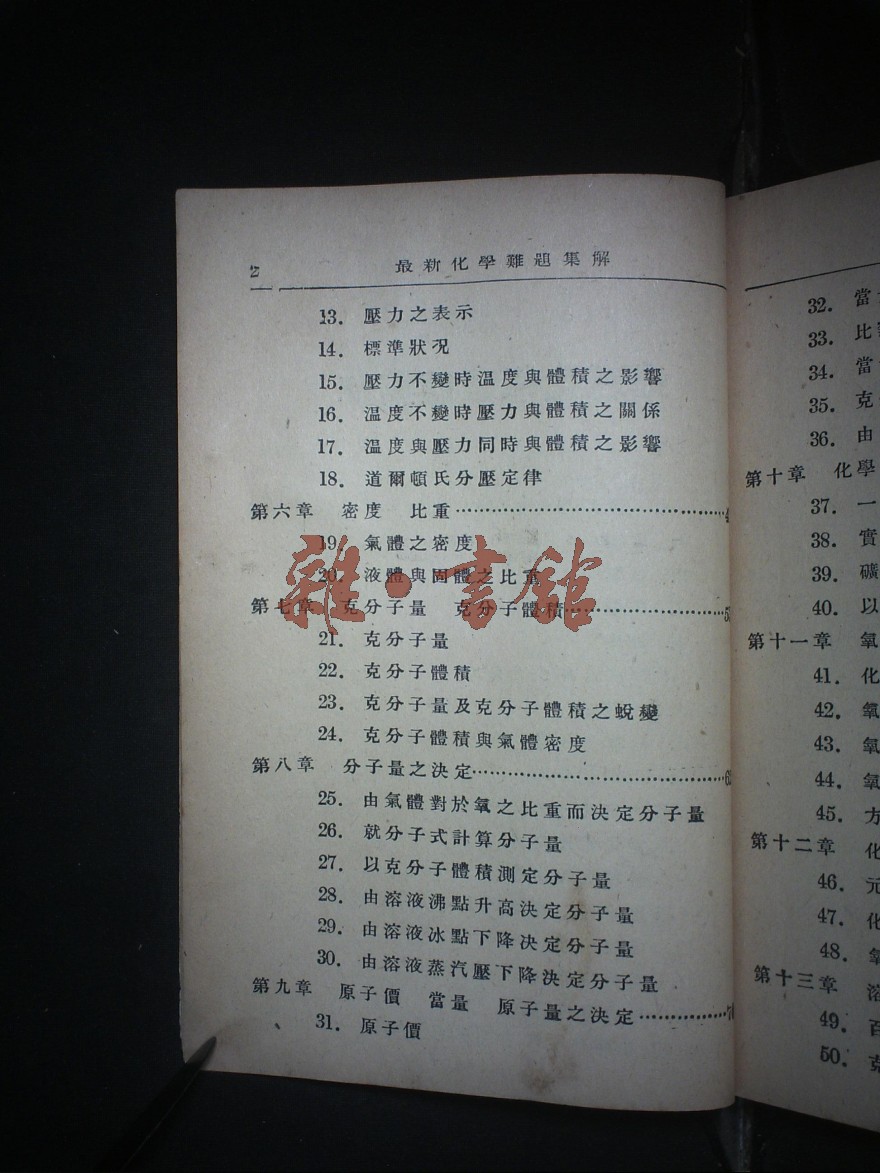 2 最新化學難題集解
13. 壓力之表示
14. 標準狀況
15. 壓力不變時溫度與體積之影響
16. 溫度不變時壓力與體積之關係
17. 溫度與壓力同時與體積之影響
18. 道爾頓氏分壓定律
第六章 密度 比重……4
19. 氣體之密度
20. 液體與固體之比重
第七章 克分子量 克分子體積……5
21. 克分子量
22. 克分子體積
23. 克分子量及克分子體積之蛻變
24. 克分子體積與氣體密度
第八章 分子量之決定……6
25. 由氣體對於氧之比重而決定分子量
26. 就分子式計算分子量
27. 以克分子體積測定分子量
28. 由溶液沸點升高決定分子量
29. 由溶液冰點下降決定分子量
30. 由溶液蒸汽壓下降決定分子量
第九章 原子價 當量 原子量之決定……7
31. 原子價
雜·書館
32. 當
33. 比
34. 當
35. 克
36. 由
第十章 化學
37. 一
38. 實
39. 礦
40. 以
第十一章 氧
41. 化
42. 氧
43. 氧
44. 氧
45. 方
第十二章 化
46. 元
47. 化
48. 氧
第十三章 溶
49. 百
50. 克